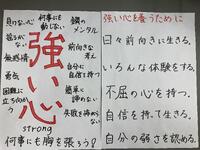 負けない心
何事にも動じない
鋼のメンタル
揺るがない
前向きな考え
無感情
自分に自信を持つ
勇気
困難に立ち向かう
簡単に諦めない
失敗を諦めない
強い心
strong
何事にも胸を張ろう!
強い心を養うために
日々前向きに生きる。
いろんな体験をする。
不屈の心を持つ。
自信を持って生きる。
自分の弱さを認める。